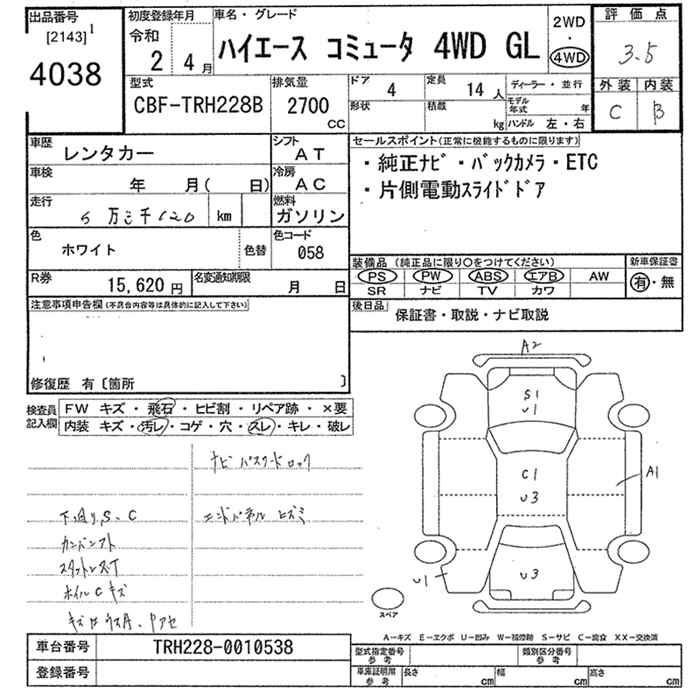 出品番号
[2143] 1
4038
初度登録年月
令和
2 年 4 月
車名・グレード
ハイエース コミュータ 4WD GL
2WD
・
4WD
評価点
3.5
外装 内装
C B
型式
CBF-TRH228B
排気量
2700
cc
ドア
4
定員
14 人
形状
積載
kg
ディーラー・並行
モデル年式 年
ハンドル 左・右
車歴
レンタカー
シフト
AT
車検
年 月( 日)
冷房
AC
走行
km
燃料
ガソリン
色
ホワイト
色替
色コード
058
R券
15,620 円
名変通知期限
月 日
セールスポイント(正常に機能するものに限ります)
・純正ナビ・バックカメラ・ETC
・片側電動スライドドア
装備品(純正品に限り○をつけてください)
PS PW ABS エアB AW
SR ナビ TV カワ
新車保証書
有・無
後日品
保証書・取説・ナビ取説
注意事項申告欄(不具合内容等は具体的に記入して下さい)
修復歴 有〔箇所 〕
検査員記入欄
FW キズ・飛石・ヒビ割・リペア跡・×要
内装 キズ・汚レ・コゲ・穴・スレ・キレ・破レ
ナビ パスワードロック
下廻りS、C
エンドパネル ヒズミ
ホイルCキズ
A2
S1
U1
C1
U3
A1
U3
U1
スペア
A-キズ E-エクボ U-凹み W-補修跡 S-サビ C-腐食 XX-交換済
車台番号
TRH228-0010538
登録番号
型式指定番号
参考
類別区分番号
参考
車庫証明用
参考
長さ cm
幅 cm
高さ cm